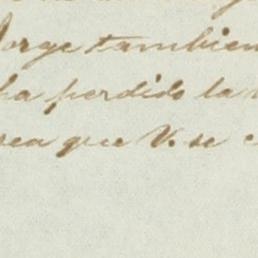 Jorge tambien
ha perdido la
sea que V. se